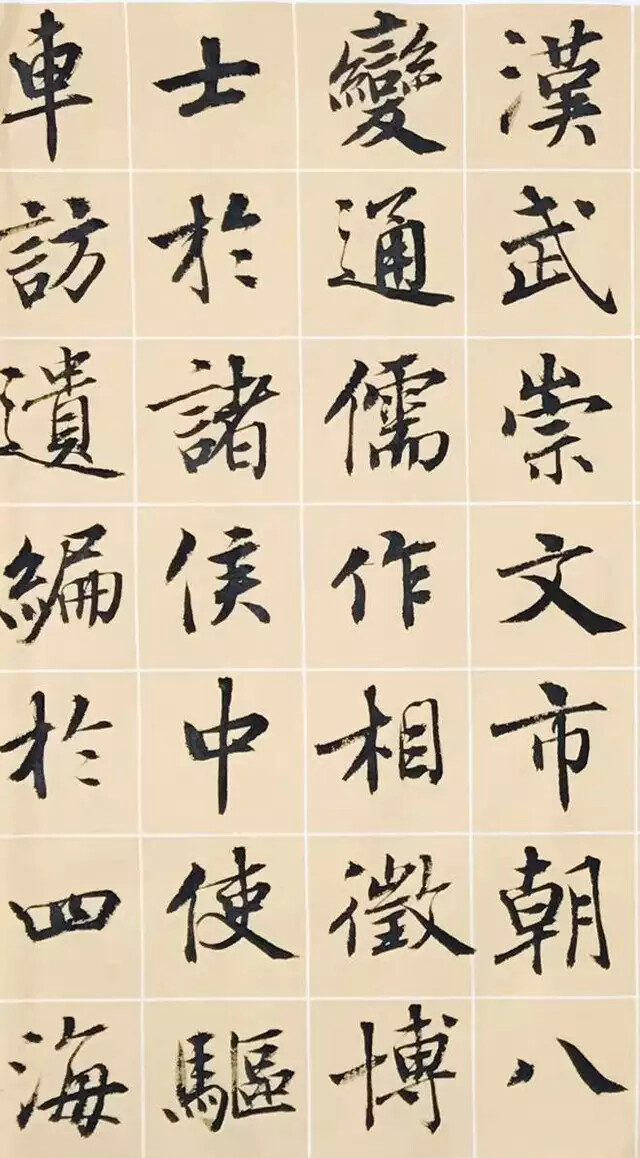 漢武崇文市朝八
變通儒作相徵博
士於諸侯中使驅
車訪遺編於四海